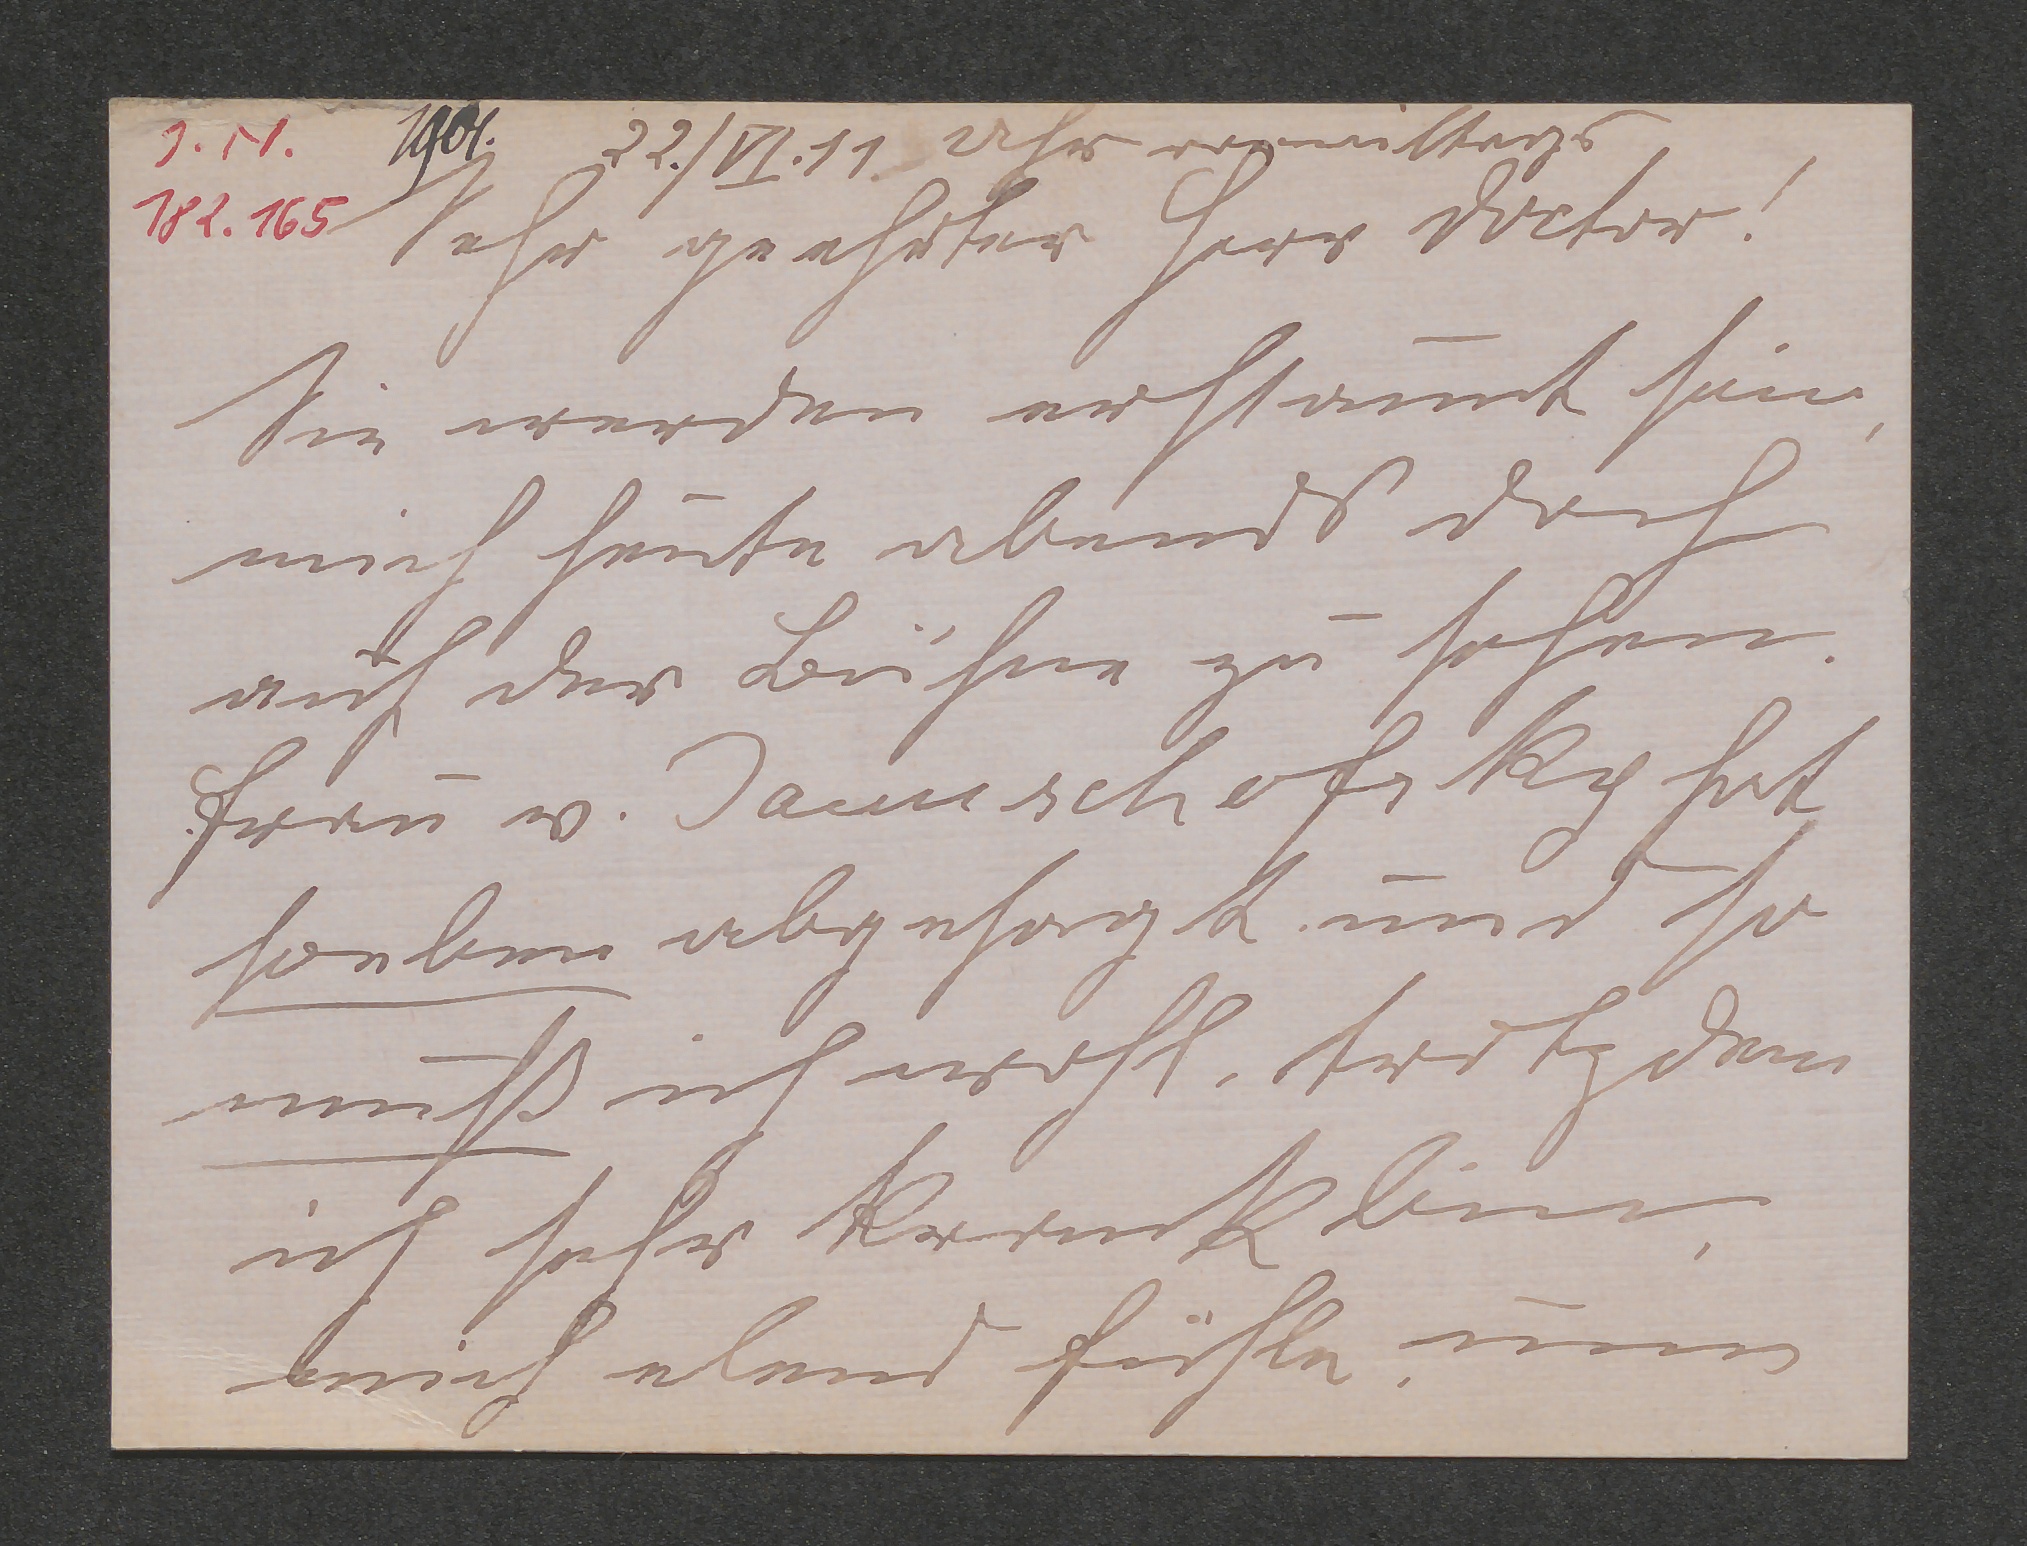 J. N. 1901. 22./VI. 11 Uhr vormittags
182.165 Sehr geehrter Herr Doctor!
Sie werden erstaunt sein,
mich heute abends doch
auf der Bühne zu sehen.
Frau v. Januschofsky hat
soeben abgesagt und so
muß ich wohl, trotzdem
ich sehr krank bin,
mich elend fühle, um